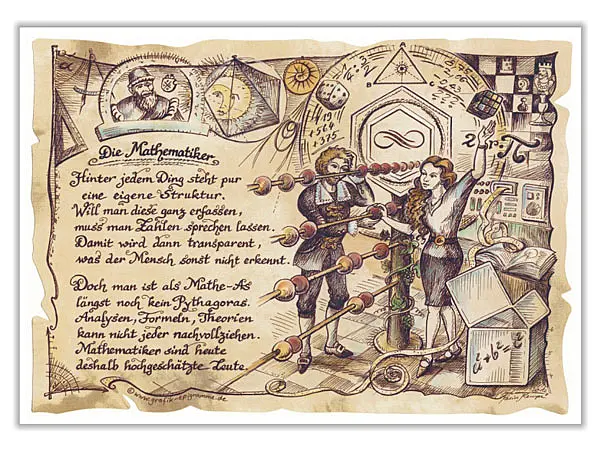 Die Mathematiker
Hinter jedem Ding steht pur
eine eigene Struktur.
Will man diese ganz erfassen,
muss man Zahlen sprechen lassen.
Damit wird dann transparent,
was der Mensch sonst nicht erkennt.
Doch man ist als Mathe-As
längst noch kein Pythagoras.
Analysen, Formeln, Theorien
kann nicht jeder nachvollziehen.
Mathematiker sind heute
deshalb hochgeschätzte Leute.
©www.grafik-epigramme.de
α
1419
+564
+375
B
2·r·π
a²+b²=c²